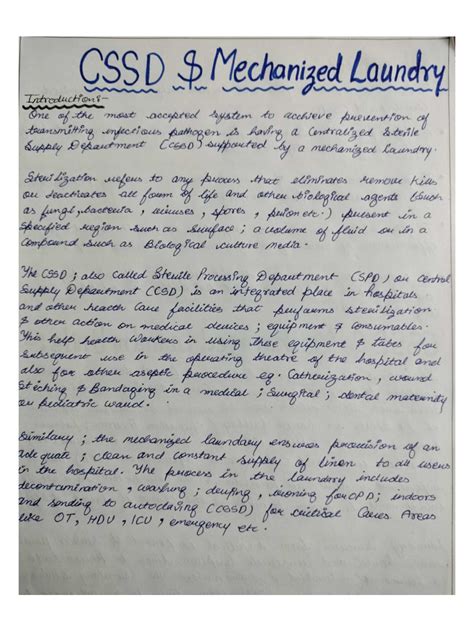 CSSD $ Mechanized Laundry
Introduction:-
One of the most accepted system to achieve prevention of
transmitting infectious pathogen is having a Centralized Sterile
Supply Department (CSSD) supported by a mechanized Laundry.
Sterilization refers to any process that eliminates remove kills
or deactivates all form of life and other biological agents (such
as fungi, bacteria, viruses, spores, prion etc.) present in a
specified region such as Surface; a volume of fluid or in a
Compound such as Biological culture media.
The CSSD; also Called Sterile Processing Department (SPD) or Central
Supply Department (CSD) is an integrated place in hospitals
and other health Care facilities that performs sterilization
& other action on medical devices; equipment & Consumables.
This help health Workers in using these equipment & takes for
Subsequent use in the operating theatre of the hospital and
also for other aseptic procedure eg. Catherization, wound
Stiching & Bandaging in a medical; Surgital; dental maternity
or pediatric ward.
Similary; the mechanized laundary ensures provision of an
adequate; clean and constant supply of linen to all users
in the hospital. The process in the laundry includes
decontamination, washing; drying, ironing for OPD; indoors
and sending to autoclaving (CSSD) for critical Cares Areas
like OT, HDU, ICU, emergency etc.